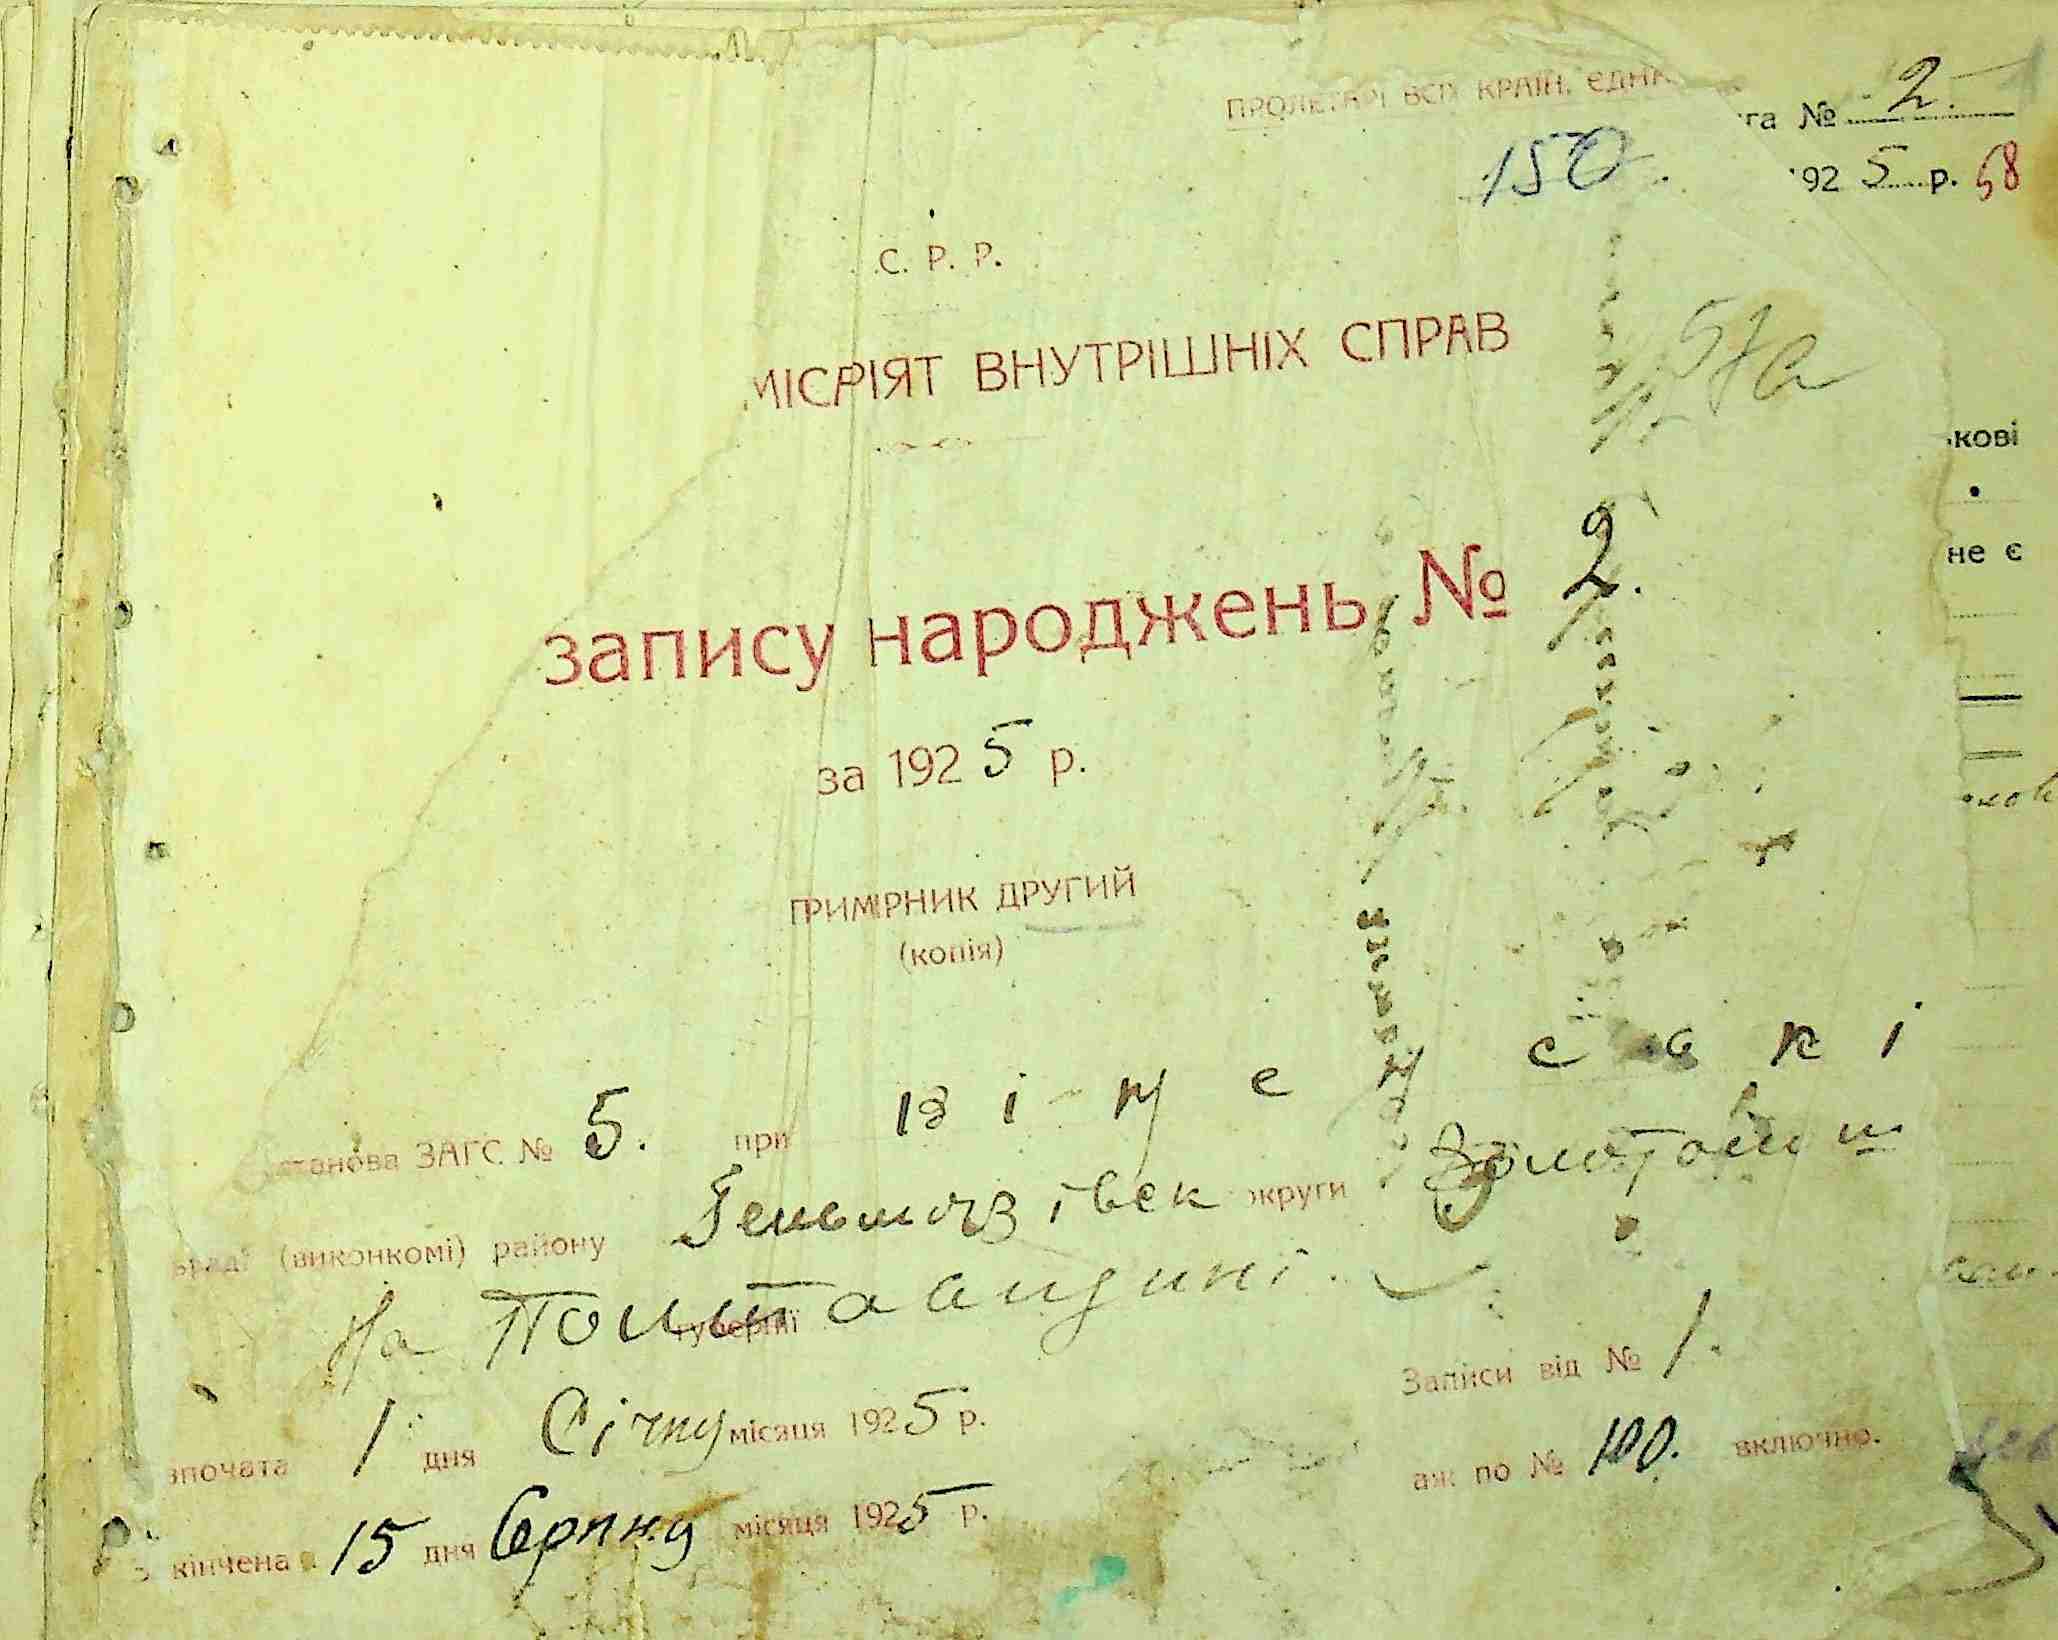 ПРОЛЕТАРІ ВСІХ КРАЇН, ЄДНАЙ
га № 2.
150.
1925 р. 58
С. Р. Р.
57а
МІСАРІЯТ ВНУТРІШНІХ СПРАВ
кові
не є
запису народжень № 2.
за 1925 р.
ПРИМІРНИК ДРУГИЙ
(копія)
станова ЗАГС. № 5. при
(виконкомі) району Гельмязівськ округи Золотоніш
На Полтавщині.
губернії
Записи від № 1.
зпочата 1 дня Січня місяця 1925 р.
аж по № 100. включно.
кінчена 15 дня Серпня місяця 1925 р.